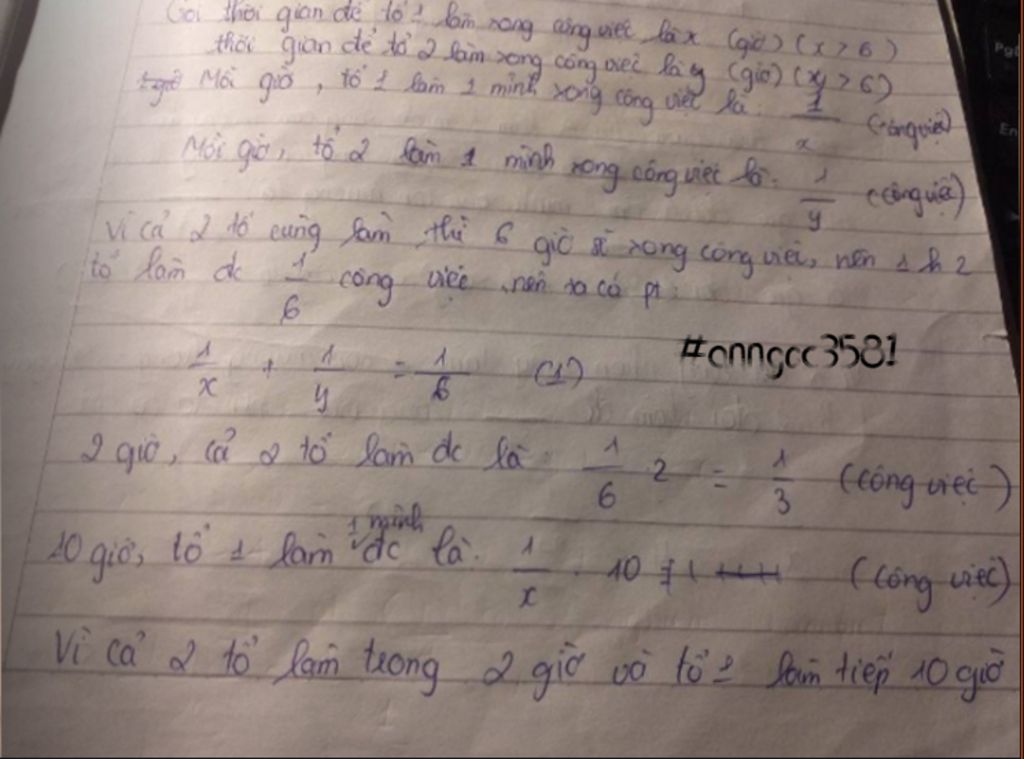 Gọi thời gian để tổ 1 làm xong công việc là x (giờ) (x > 6)
thời gian để tổ 2 làm xong công việc là y (giờ) (y > 6)
Mỗi giờ, tổ 1 làm 1 mình xong công việc là: 1/x (công việc)
Mỗi giờ, tổ 2 làm 1 mình xong công việc là: 1/y (công việc)
Vì cả 2 tổ cùng làm thì 6 giờ sẽ xong công việc, nên 1h 2
tổ làm dc 1/6 công việc nên ta có pt:
1/x + 1/y = 1/6 (1)
#anngcc3581
2 giờ, cả 2 tổ làm dc là 1/6 . 2 = 1/3 (công việc)
10 giờ, tổ 1 làm 1 mình dc là: 1/x . 10 (công việc)
Vì cả 2 tổ làm trong 2 giờ và tổ 1 làm tiếp 10 giờ